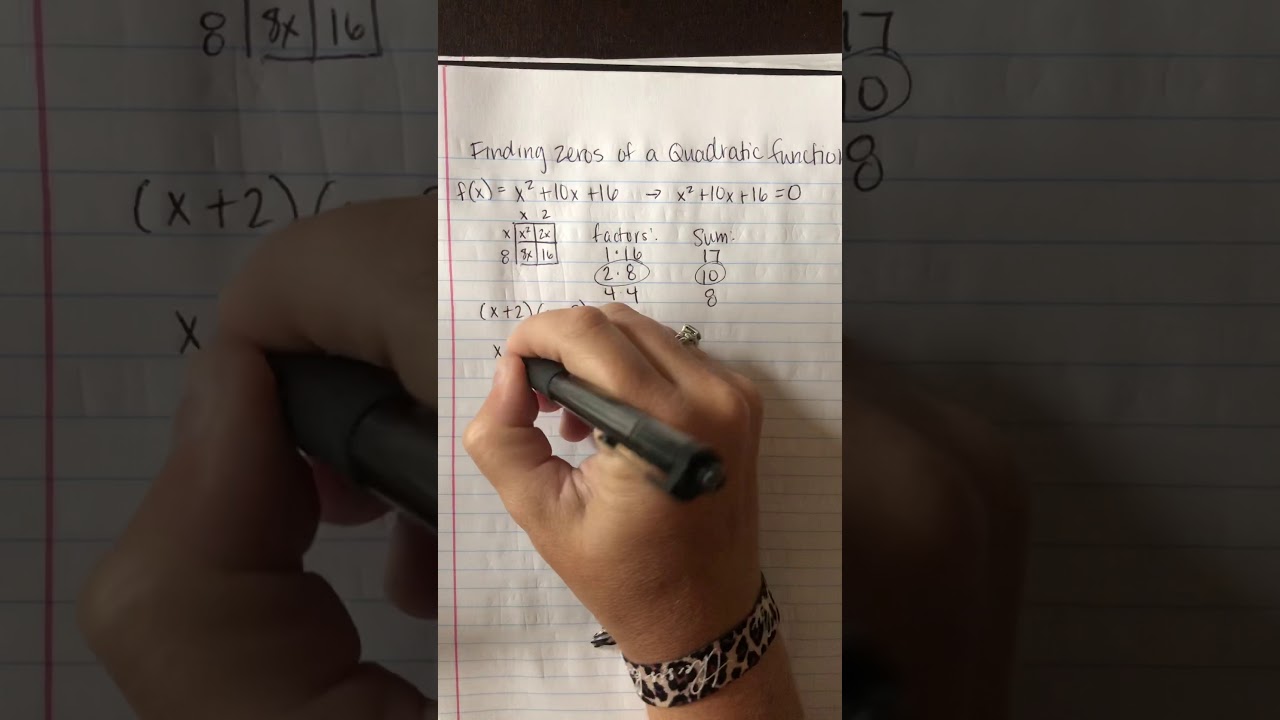 Finding zeros of a Quadratic function
f(x) = x² + 10x + 16 → x² + 10x + 16 = 0
x 2
x x² 2x
8 8x 16
factors: Sum:
1 · 16 17
2 · 8 10
4 · 4 8
(x+2)(
x